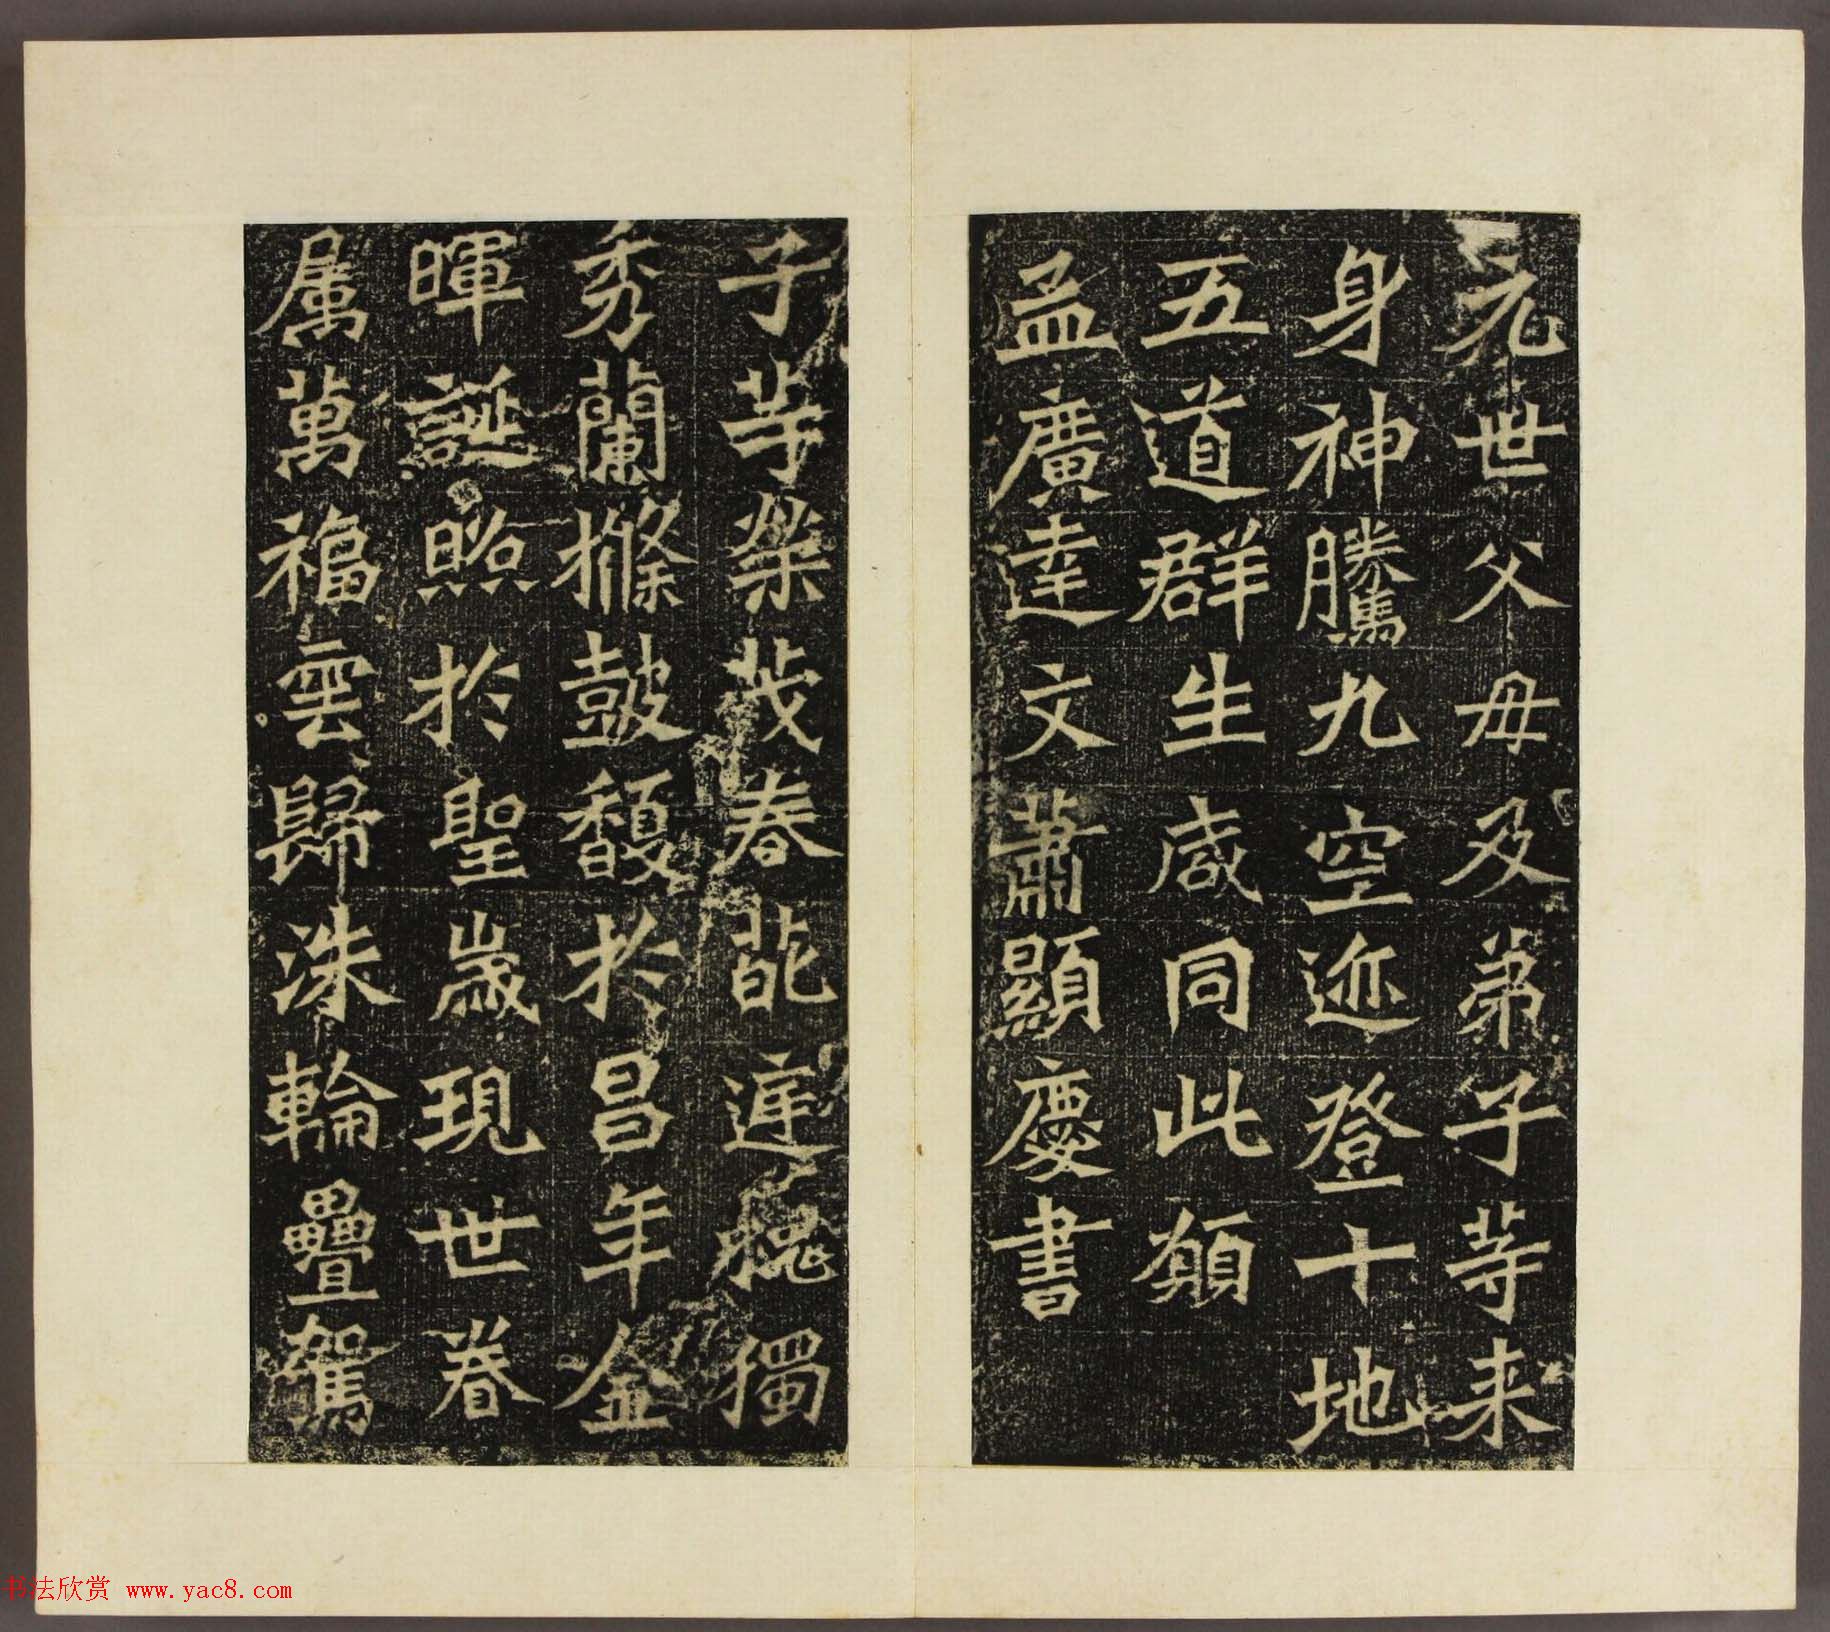 元世父母及弟子等来
身神騰九空迹登十地
五道群生咸同此願
孟廣達文蕭顯慶書
子等榮茂春葩庭槐獨
秀蘭條鼓馥於昌年金
暉誕照於聖歲現世眷
属萬福雲歸洙輪疊駕
书法欣赏 www.yac8.com